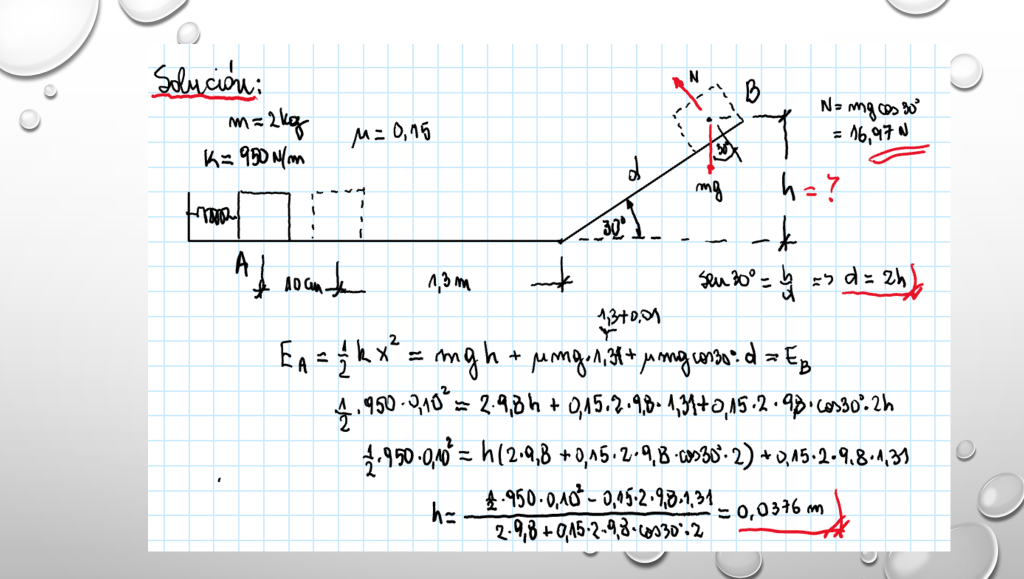 Solución:
m = 2 kg
μ = 0,15
K = 950 N/m
N
B
N = mg cos 30°
= 16,97 N
30°
d
mg
h = ?
30°
A
10 cm
1,3 m
sen 30° = h/d => d = 2h
1,3+0,01
E_A = 1/2 k x² = mgh + μmg·1,31 + μmg cos30°·d = E_B
1/2·950·0,10² = 2·9,8h + 0,15·2·9,8·1,31+0,15·2·9,8·cos30°·2h
1/2·950·0,10² = h(2·9,8 + 0,15·2·9,8·cos30°·2) + 0,15·2·9,8·1,31
h = (1/2·950·0,10² - 0,15·2·9,8·1,31)/(2·9,8 + 0,15·2·9,8·cos30°·2) = 0,0376 m